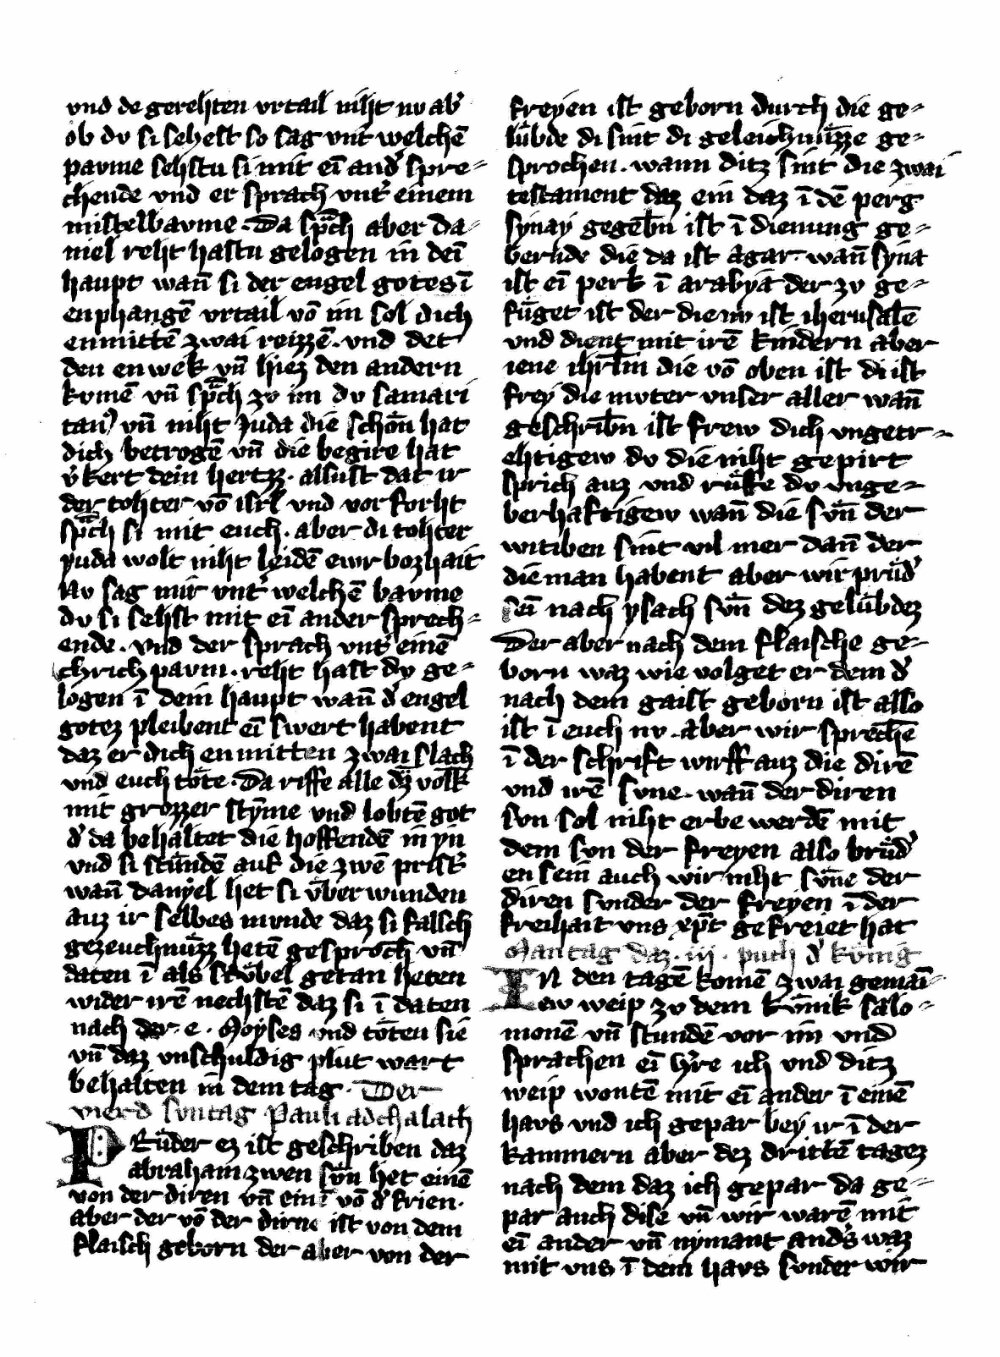 vnd de gerehten vrtail niht nv ab᷑
ob dv si sehest so sag vnt᷑ welchē
pavme sehstu si mit eī and᷑ spre⸗
chende vnd er sprach vnt᷑ einem
mistelbavme. Da sp̄ch aber da⸗
niel reht hastu gelogen in deī
haupt wan̄ si der engel gotes ī
enphangē vrtail vō im sol dich
enmittē zwai reizzē. vnd det
den enwek vn̄ hiez den andern
kvmē vn̄ sp̄ch zv im dv samari
tan᷑ vn̄ niht Juda die schōn hat
dich betrogē vn̄ die begire hat
v᷑kert dein hertze. allust dat ir
der tohter vō isrl vnd vor forht
sp̄ch si mit euch. aber di tohter
yuda wolt niht leidē ewr bozhait
Nv sag mir vnt᷑ welchē bavme
dv si sehst mit eī ander sprech⸗
ende. vnd der sprach vnt᷑ einē
chrichpavm. reht hast dv ge⸗
logen ī deim haupt wan̄ d᷑ engel
gotez pleibent eī swert habent
daz er dich enmitten zwai slach
vnd euch tōte. Da riffe alle dz volk
mit grozzer stȳme vnd lobtē got
d᷑ da behaltet die hoffendē in yn
vnd si stūndē auf die zwē prist᷑
wan̄ danyel het si v̄berwunden
auz ir selbes munde daz si falsch
gezeuchnūzz hetē gesproch̄ vn̄
daten ī als si v̄bel getan heten
wider irē nechstē daz si ī daten
nach der e. Moyses vnd tōten sie
vn̄ daz vnschuldig plut wart
behalten in dem tag. Der
vierd svntag Pauli ad chalach
PRūder ez ist geschriben daz
abraham zwen sv̄n het einē
von der diren vn̄ einē vō d᷑ frien.
aber der vō der dirne ist von dem
flaisch geborn der aber von der
freyen ist geborn durch die ge⸗
lūbde di sint di geleichnūzze ge⸗
sprochen. wann ditz sint die zwai
testament daz ein daz ī dē perg
synay gegeb̄n ist ī dienung ge⸗
berūde die da ist agar. wan̄ syna
ist eī perk ī arabya der zv ge⸗
fūget ist der die nv ist iherusalē
vnd dient mit irē kindern aber
iene ihrlm̄ die vō oben ist di ist
frey die mvter vnser aller wan̄
geschrib̄n ist frew dich vngetr⸗
ehtigew dv die niht gepirt
sprich auz vnd rūffe dv vnge⸗
berhaftigew wan̄ die sv̄n der
witiben sint vil mer dan̄ der
die man habent aber wir prūd᷑
seī nach ysach sv̄n dez gelūbdez
Der aber nach dem flaische ge⸗
born waz wie volget er dem d᷑
nach dem gaist geborn ist also
ist ī euch nv. aber wir sprechē
ī der schrift wirff auz die dirē
vnd irē svne. wan̄ der diren
svn sol niht erbe werdē mit
dem svn der freyen also brūd᷑
en sein auch wir niht sv̄ne der
diren svnder der freyen ī der
freihait vns xp̄t gefreiet hat
Mantag daz .iij. puch d᷑ kūnig
IN den tagē komē zwai gemaī⸗
ew weip zv dem kūnik salo⸗
monē vn̄ stunden vor im vnd
sprachen eī h᷑re ich vnd ditz
weip wontē mit eī ander ī einē
havs vnd ich gepar bey ir ī der
kammern aber dez drittē tagez
nach dem daz ich gepar da ge⸗
par auch dise vn̄ wir warē mit
eī ander vn̄ nymant and᷑s waz
mit vns ī dem havs svnder wir